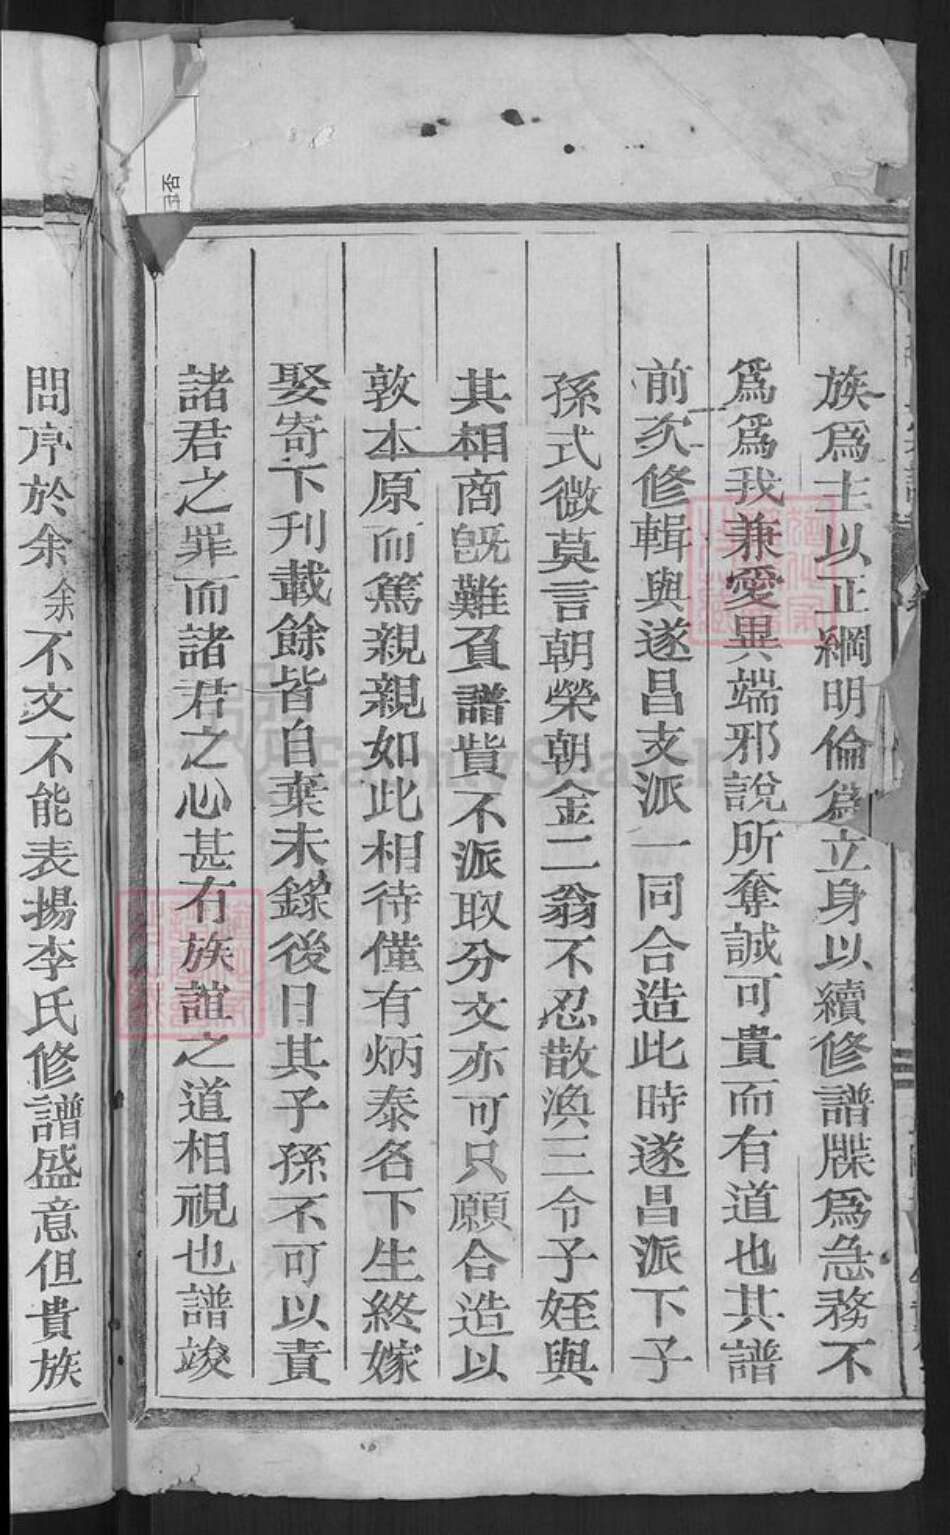 族爲主以正綱明倫爲立身以續修譜牒爲急務不
爲爲我兼愛異端邪說所奪誠可貴而有道也其譜
前次修輯與遂昌支派一同合造此時遂昌派下子
孫式微莫言朝榮朝金二翁不忍散渙三令子姪與
其相商旣難負譜貲不派取分文亦可只願合造以
敦本原而篤親親如此相待僅有炳泰名下生終嫁
娶寄下刋載餘皆自棄未錄後日其子孫不可以責
諸君之罪而諸君之心甚有族誼之道相視也譜竣
問序於余余不文不能表揚李氏修譜盛意但貴族
FamilySearch